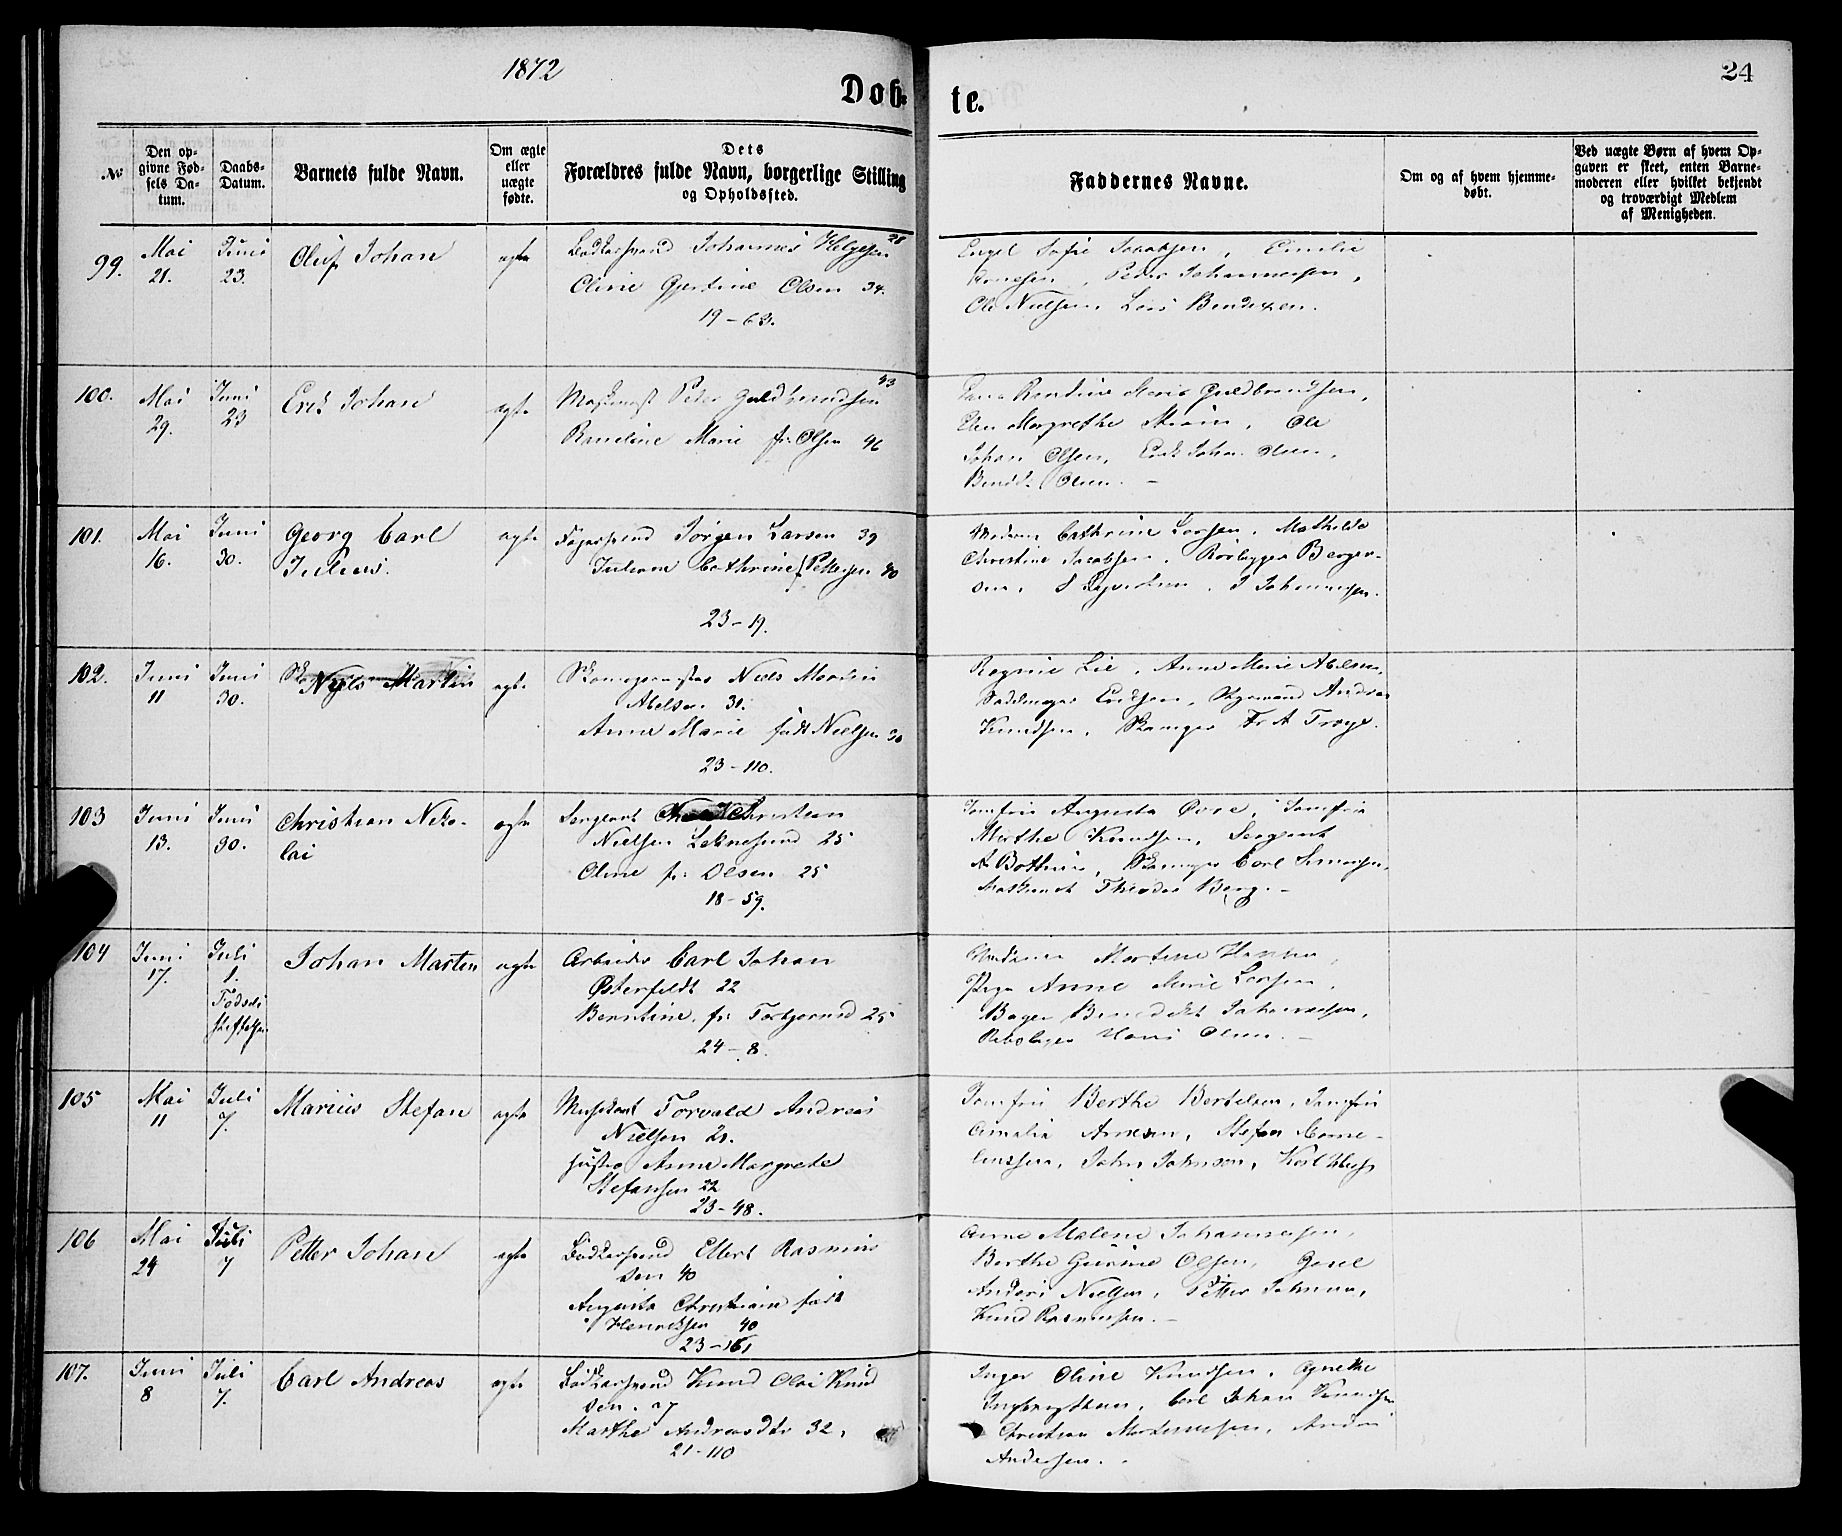 1872
24
Døb-
te.
No
Den op-
givne Fød-
sels Da-
tum.
Daabs-
Datum.
Barnets fulde Navn.
Om ægte
eller
uægte
fødte.
Dets
Forældres fulde Navn, borgerlige Stilling
og Opholdssted.
Faddernes Navne.
Om og af hvem hjemme-
døbt.
Ved uægte Børn af hvem Op-
gaven er skeet, enten Barne-
moderen eller hvilket bekjendt
og troværdigt Medlem
af Menigheden.
99.
Mai
21.
Juni
23.
Oluf Johan
ægte
Bødkersvend Johannes Helgesen 28
Oline Gjertine Olsen 34.
19-63.
Engel Sofie Jacobsen, Emilie
Arnesen, Peder Johannessen,
Ole Nielsen, Lars Bendixen.
100.
Mai
29.
Juni
23
Erik Johan
ægte
Peter Guldbrandsen 43
Marie f. Olsen 46
Marie Guldbrandsen,
Elen Margrethe Ole
Johan Olsen, Erik Johan Olsen,
Olsen. -
101.
Mai
16.
Juni
30.
Georg Carl
Julius.
ægte
Jørgen Larsen 39
Juliane Cathrine f. Pettersen 40
23-19.
Moderen Cathrine Larsen, Mathilde
Christine Jacobsen, Berger-
sen, J Johannessen.
102.
Juni
11
Juni
30.
Niels Martin
ægte
Skomagermester Niels Martin
Abelsen 30.
Anne Marie født Nielsen 30
23-110.
Ragnie Lie, Anne Marie Abelsen,
Sadelmager Andreas
Knudsen, Skomager Fr A Troye.
103
Juni
13.
Juni
30.
Christian Niko-
lai
ægte
Sergeant Christian
Nielsen Leknesund 25
Oline f. Olsen 25
18-59.
Jomfru Augusta Øvre, Jomfru
Marthe Knudsen, Sergeant
A Skomager Carl Simonsen,
Theodor Berg. -
104
Juni
17.
Juli
1.
Fødsels
stiftelsen
Johan Martin
ægte
Arbeider Carl Johan
Østerfeldt 22
Berntine f. Torbjørnsd 25
24-8.
Martine Hansen,
Pige Anne Marie Larsen,
Bager Benedikt Johannessen,
Hans Olsen. -
105
Mai
11
Juli
7.
Marius Stefan
ægte
Musikant Torvald Andreas
Nielsen 21.
hustru Anne Margrete
Stefansen 22
23-48.
Jomfru Berthe Bertelsen, Jomfru
Amalia Arnesen, Stefan Corne-
liussen, John Johnson, Karl
106
Mai
24
Juli
7
Petter Johan
ægte
Bødkersvend Ellert Rasmus
sen 40
Augusta Christiane født
Henriksen 40
23-161
Anne Malene Johannessen,
Berthe Gurine Olsen, Gosel
Anders Nielsen, Petter Johnsen,
Knud Rasmussen. -
107.
Juni
8
Juli
7.
Carl Andreas
ægte
Bødkersvend Knud Olai Knud
sen. 27
Marthe Andreasdtr 32,
21-110
Inger Oline Knudsen, Agnethe
Ingbrigtsen, Carl Johan Knudsen
Christian Mortensen, Anders
Andersen.